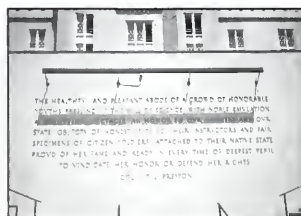 THE HEALTHFUL AND PLEASANT ABODE OF A CROWD OF HONORABLE
YOUTHS PRESSING UP THE HILL OF SCIENCE WITH NOBLE EMULATION
A OUR
STATE OF HONEST INSTRUCTORS AND FAIR
SPECIMENS OF CITIZEN SOLDIERS ATTACHED TO THEIR NATIVE STATE
PROUD OF HER FAME AND READY IN EVERY TIME OF DEEPEST PERIL
TO VINDICATE HER HONOR OR DEFEND HER RIGHTS
COL. J.T.L. PRESTON